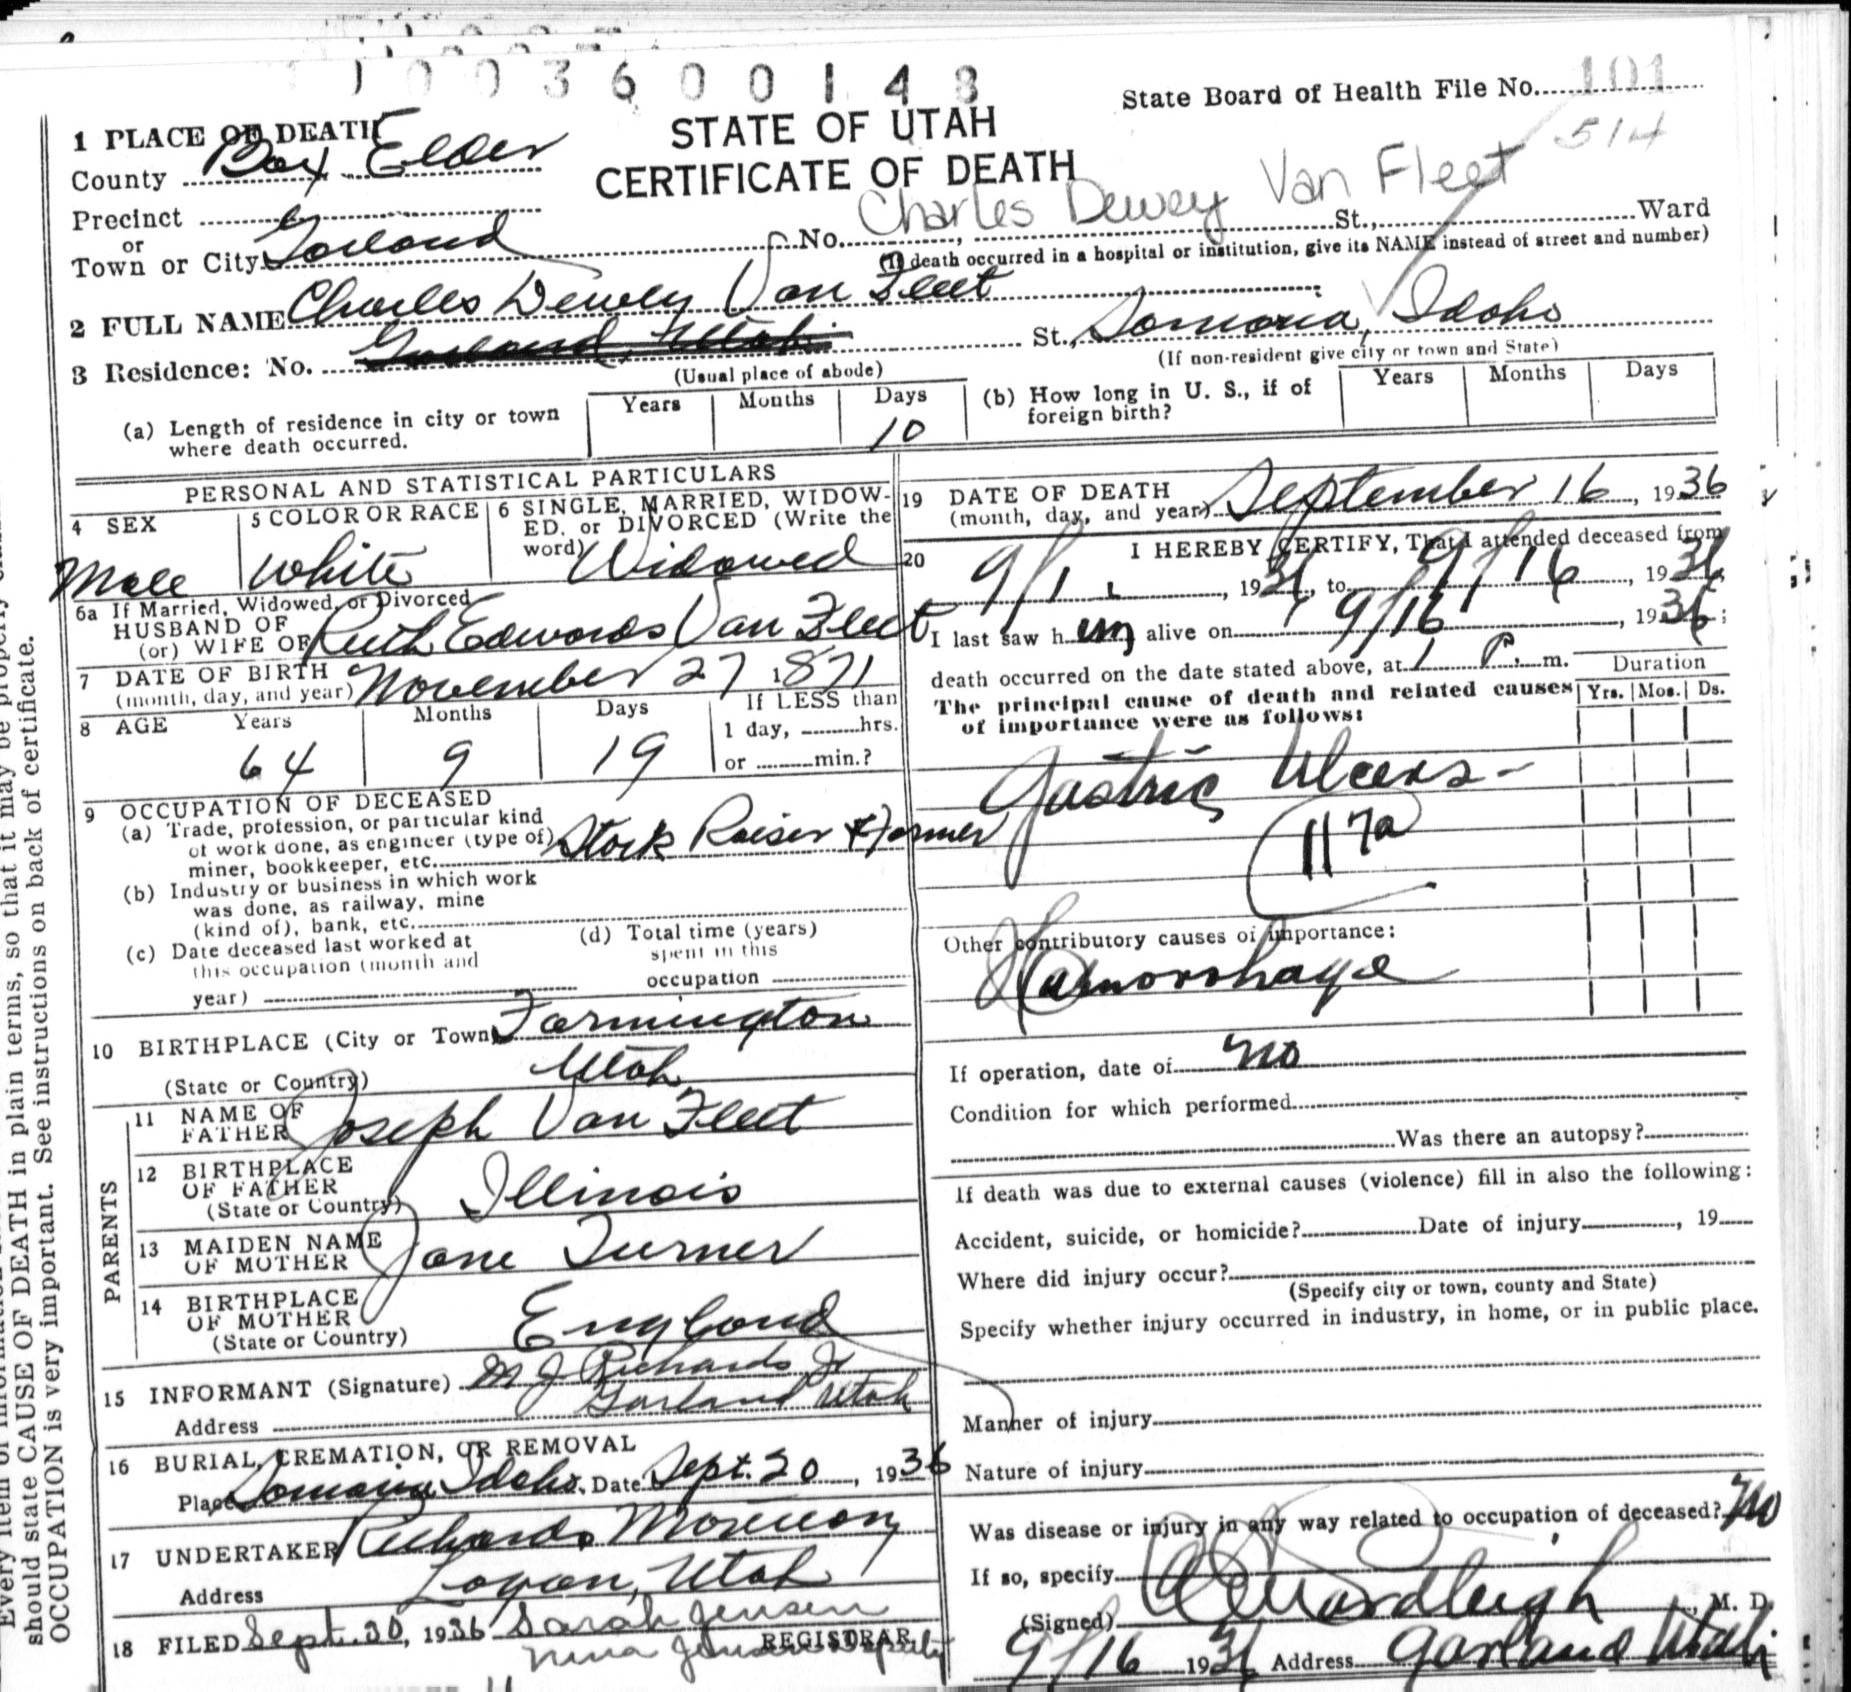 1003600148
State Board of Health File No. 101
514
1 PLACE OF DEATH
STATE OF UTAH
CERTIFICATE OF DEATH
County Box Elder
Charles Dewey Van Fleet
Precinct
or
Town or City Garland No. , St., Ward
(If death occurred in a hospital or institution, give its NAME instead of street and number)
2 FULL NAME Charles Dewey Van Fleet
3 Residence: No. Garland, Utah St., Samaria, Idaho
(Usual place of abode)
(If non-resident give city or town and State)
(a) Length of residence in city or town where death occurred. Years Months Days 10
(b) How long in U. S., if of foreign birth? Years Months Days
PERSONAL AND STATISTICAL PARTICULARS
4 SEX Male
5 COLOR OR RACE White
6 SINGLE, MARRIED, WIDOW-
ED, or DIVORCED (Write the
word) Widowed
6a If Married, Widowed, or Divorced
HUSBAND OF
(or) WIFE OF Ruth Edwards Van Fleet
7 DATE OF BIRTH
(month, day, and year) November 27 1871
8 AGE Years 64 Months 9 Days 19
If LESS than
1 day, hrs.
or min.?
9 OCCUPATION OF DECEASED
(a) Trade, profession, or particular kind
of work done, as engineer (type of)
miner, bookkeeper, etc. Stock Raiser & Farmer
(b) Industry or business in which work
was done, as railway, mine
(kind of), bank, etc.
(c) Date deceased last worked at
this occupation (month and
year)
(d) Total time (years)
spent in this
occupation
10 BIRTHPLACE (City or Town) Farmington
(State or Country) Utah
PARENTS
11 NAME OF
FATHER Joseph Van Fleet
12 BIRTHPLACE
OF FATHER
(State or Country) Illinois
13 MAIDEN NAME
OF MOTHER Jane Turner
14 BIRTHPLACE
OF MOTHER
(State or Country) England
15 INFORMANT (Signature) M J Richards Jr
Address Garland Utah
16 BURIAL, CREMATION, OR REMOVAL
Place Samaria Idaho. Date Sept. 20, 1936
17 UNDERTAKER Richards Mortuary
Address Logan, Utah
18 FILED Sept. 30, 1936 Sarah Jensen
REGISTRAR
Nina Jensen Deputy
19 DATE OF DEATH
(month, day, and year) September 16, 1936
20 I HEREBY CERTIFY, That I attended deceased from
9/1, 1936, to 9/16, 1936
I last saw h im alive on 9/16, 1936;
death occurred on the date stated above, at 1 P. m.
Duration
Yrs. Mos. Ds.
The principal cause of death and related causes
of importance were as follows:
Gastric Ulcers -
117a
Other contributory causes of importance:
Haemorrhage
If operation, date of no
Condition for which performed
Was there an autopsy?
If death was due to external causes (violence) fill in also the following:
Accident, suicide, or homicide? Date of injury , 19
Where did injury occur?
(Specify city or town, county and State)
Specify whether injury occurred in industry, in home, or in public place.
Manner of injury
Nature of injury
Was disease or injury in any way related to occupation of deceased? No
If so, specify
(Signed) Wardleigh, M. D.
9/16 1936 Address Garland Utah
should state CAUSE OF DEATH in plain terms, so that it may be
OCCUPATION is very important. See instructions on back of certificate.